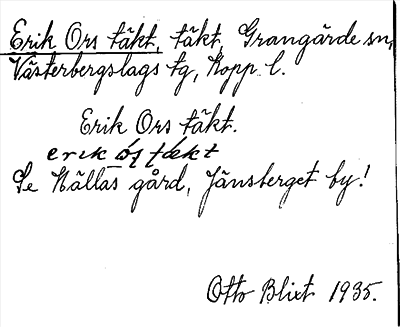 Erik Ors täkt, täkt, Grangärde sn,
Västerbergslags tg, Kopp. l.
Erik Ors täkt.
erik ó̱ṣ täkt
Se Källas gård, Jänsberget by!
Otto Blixt 1935.